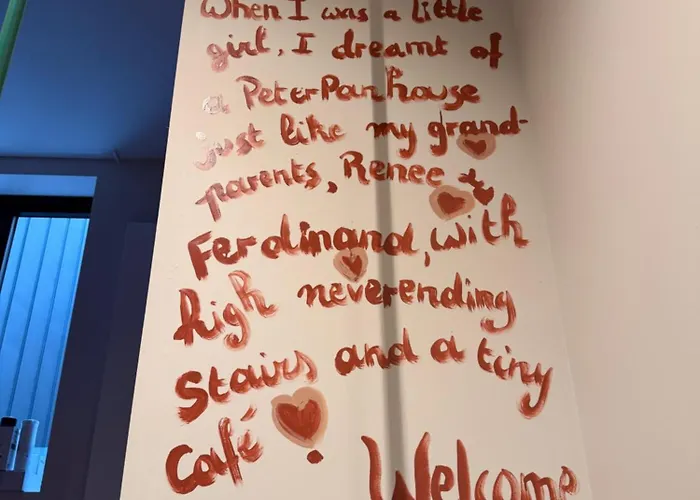 When I was a little
girl, I dreamt of
a PeterPan house
just like my grand-
parents, Renee &
Ferdinand, with
high neverending
stairs and a tiny
Café.
Welcome